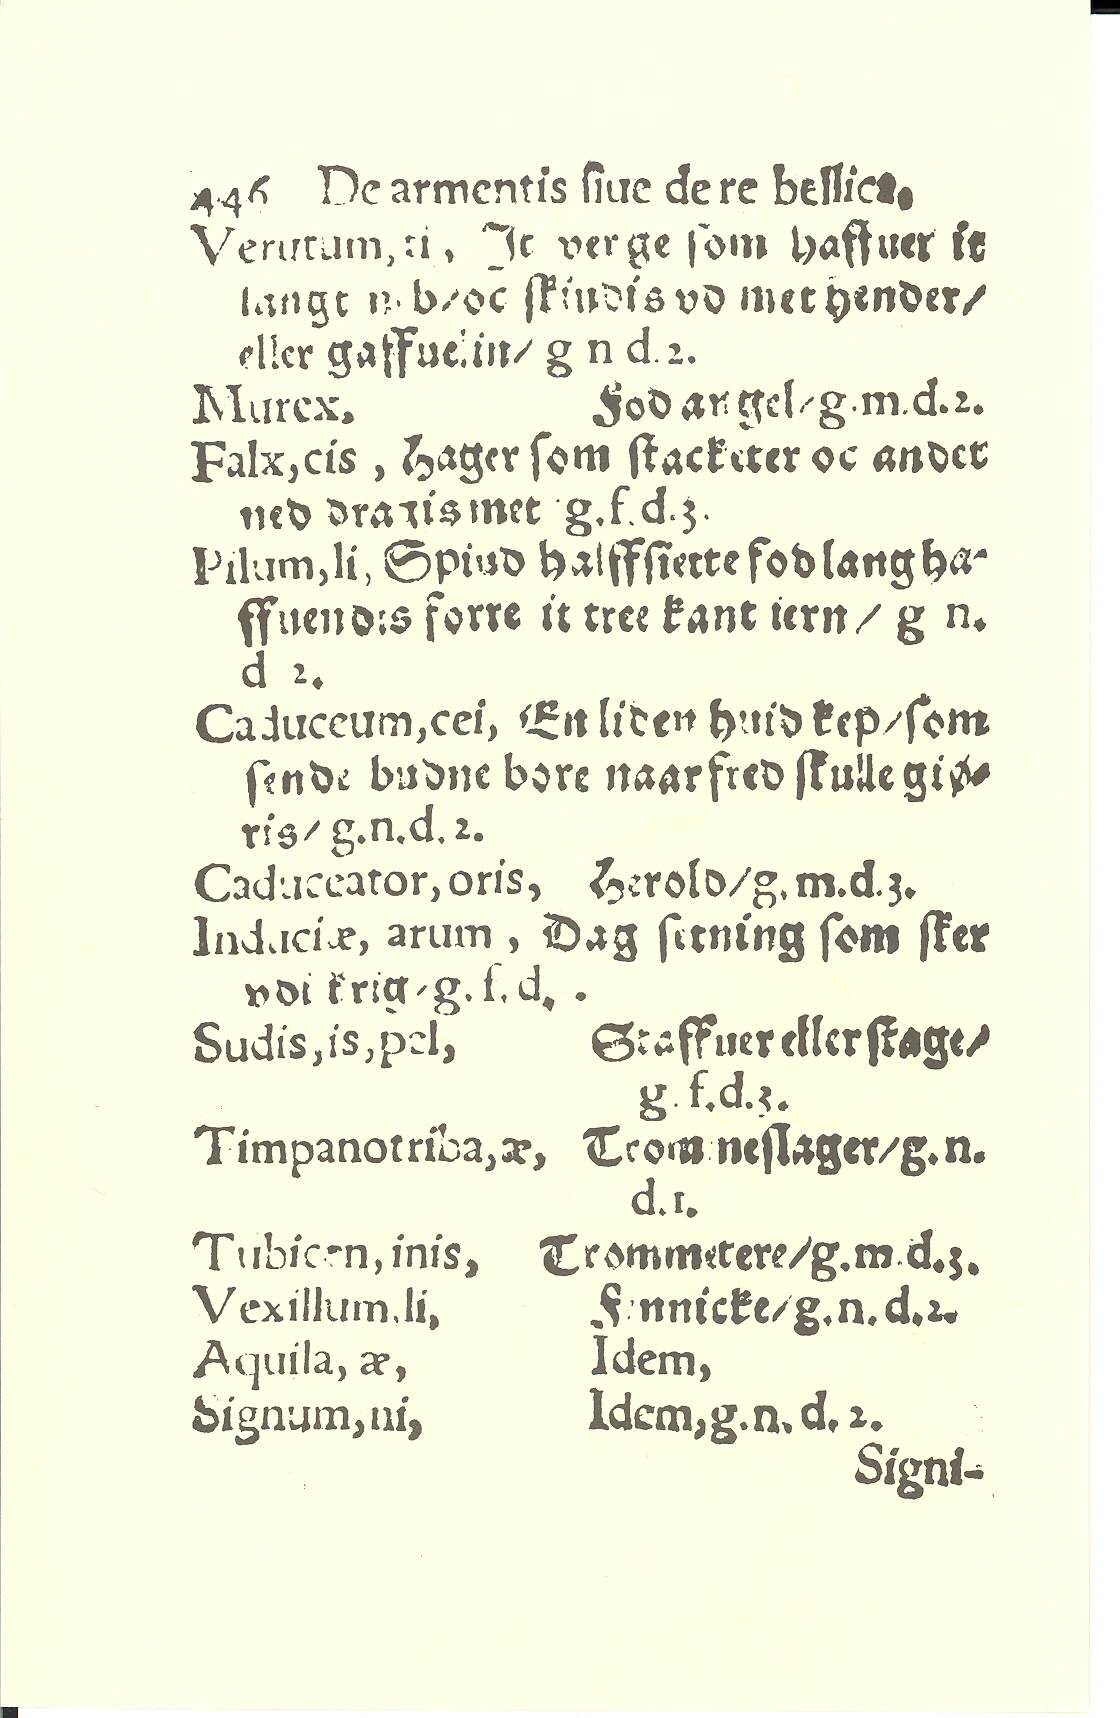 446 De armentis ſiue de re bellica.
Verutum, ti, It verge ſom haffuer it
langt neb/oc ſkiudis vd met hender/
eller gaffuelin/ g n d. 2.
Murex, Fod angel/g.m.d.2.
Falx,cis, Hager ſom ſtacketer oc andet
ned dragis met g.f.d.3.
Pilum,li, Spiud halffſiette fod lang ha-
ffuendis forre it tree kant iern/ g n.
d 2.
Caduceum,cei, En liden huid kep/ſom
ſende budne bore naar fred ſkulle giø-
ris/ g.n.d. 2.
Caduceator, oris, Herold/g. m.d.3.
Induciæ, arum, Dag ſetning ſom ſker
vdi krig/g. f. d.
Sudis,is,pel, Staffuer eller ſtage/
g. f.d.3.
Timpanotriba,æ, Trommeſlager/g.n.
d.1.
Tubicen, inis, Trommetere/g.m.d.3.
Vexillum.li, Fennicke/g.n.d.2.
Aquila, æ, Idem,
Signum,ni, Idem,g.n. d. 2.
Signi-